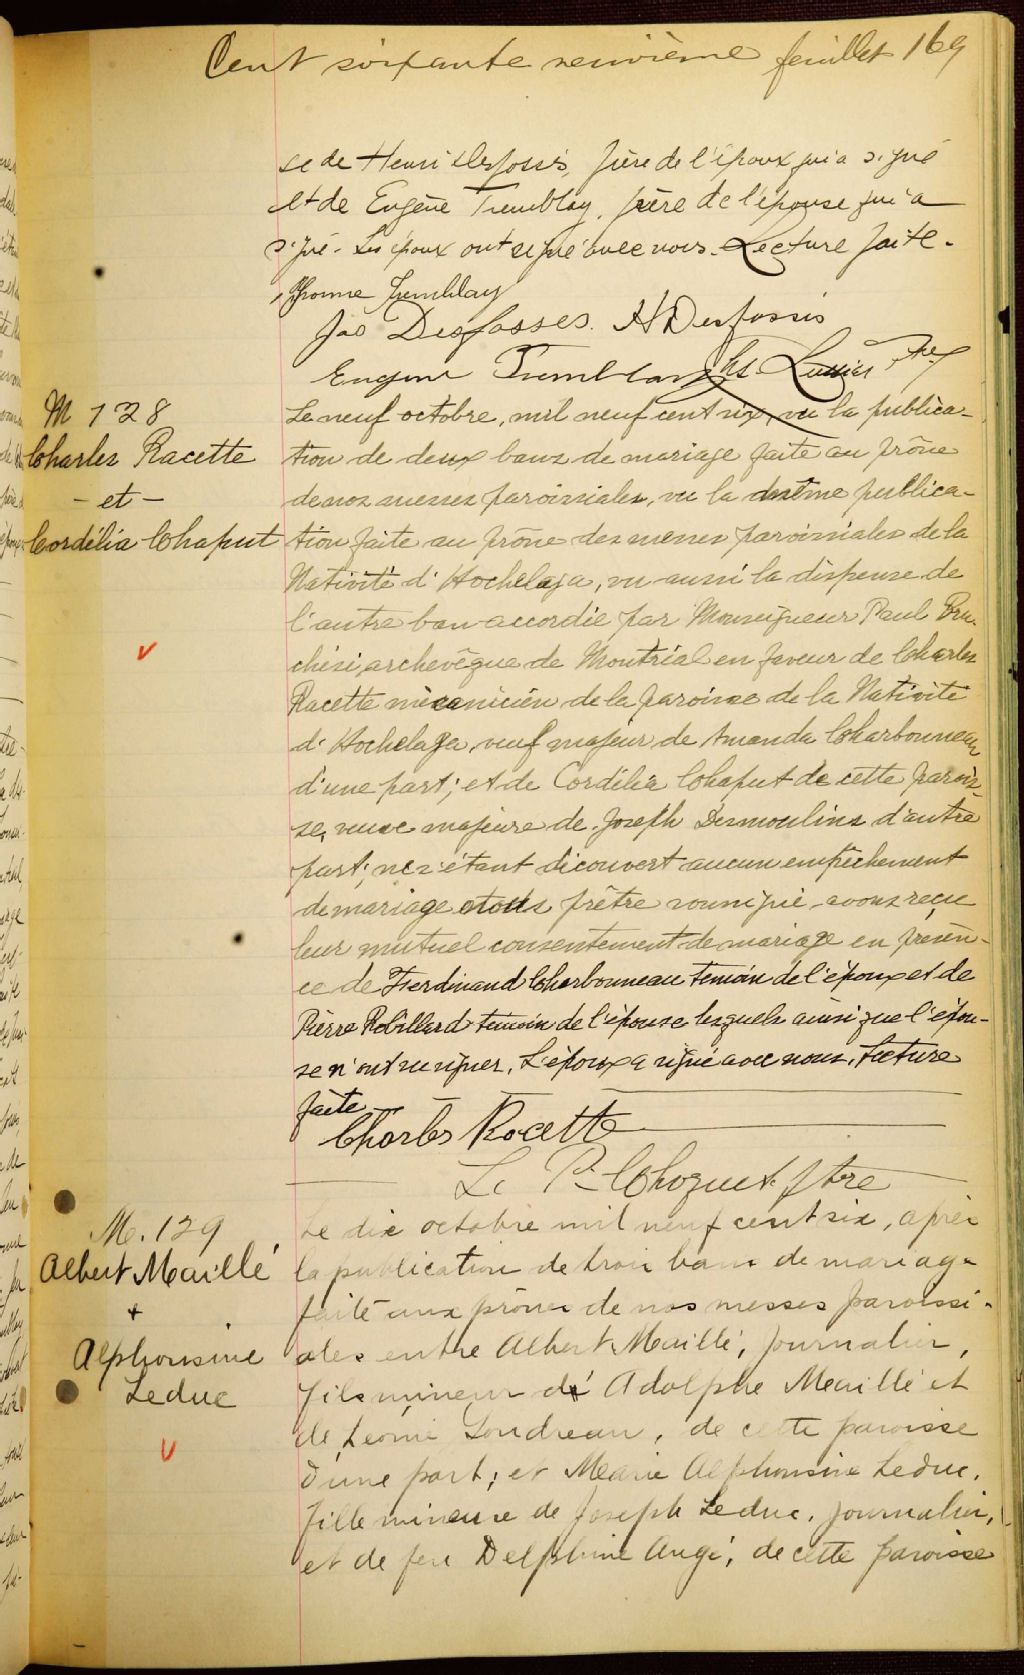 Cent soixante neuvième feuillet 169
se de Henri Desfossés, père de l'époux qui a signé
et de Eugène Tremblay, père de l'épouse qui a
signé. Les époux ont signé avec nous. Lecture faite.
Yvonne Tremblay
Jos Desfosses. H Desfossés
Eugène Tremblay Chs. Lussier Ptre
M 128
Charles Racette
- et -
Cordélia Chaput
Le neuf octobre, mil neuf cent six, vu la publica-
tion de deux bans de mariage faite au prône
de nos messes paroissiales, vu la même publica-
tion faite au prône des messes paroissiales de la
Nativité d'Hochelaga, vu aussi la dispense de
l'autre ban accordée par Monseigneur Paul Bru-
chési, archevêque de Montréal en faveur de Charles
Racette mécanicien de la paroisse de la Nativité
d'Hochelaga, veuf majeur de Amanda Charbonneau
d'une part; et de Cordélia Chaput de cette parois-
se, veuve majeure de Joseph Desmoulins d'autre
part; ne s'étant découvert aucun empêchement
de mariage nous prêtre soussigné avons reçu
leur mutuel consentement de mariage en présen-
ce de Ferdinand Charbonneau témoin de l'époux et de
Pierre Robillard témoin de l'épouse lesquels ainsi que l'épou-
se n'ont su signer. L'époux a signé avec nous. Lecture
faite
Charles Racette
L. P. Choquet. Ptre
M. 129
Albert Maillé
+
Alphonsine
Leduc
Le dix octobre mil neuf cent six, après
la publication de trois bans de mariage
faite aux prônes de nos messes paroissi-
ales entre Albert Maillé, journalier,
fils mineur de Adolphe Maillé et
de Léonie Gendreau, de cette paroisse
d'une part; et Marie Alphonsine Leduc,
fille mineure de Joseph Leduc, journalier,
et de feu Delphine Augé, de cette paroisse